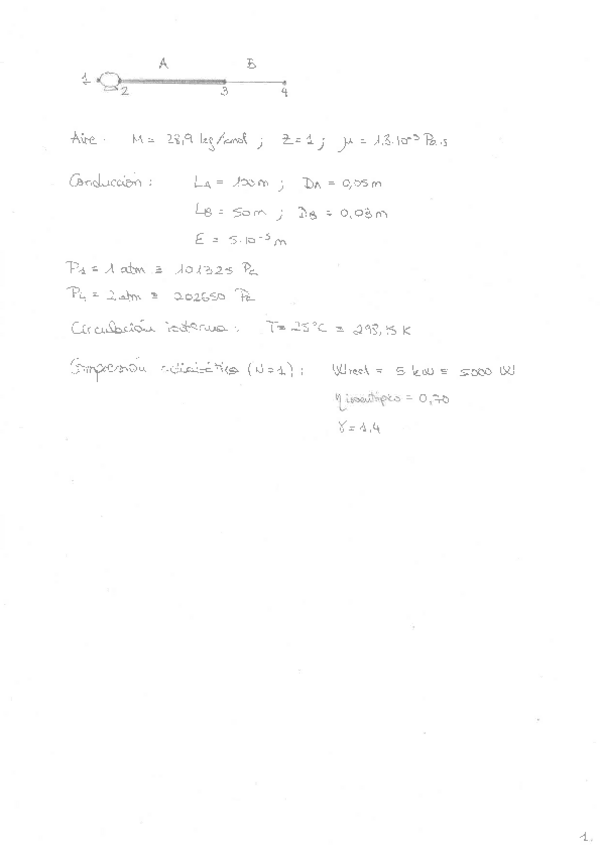 A B
1 2 3 4
Aire: M = 28,9 kg/kmol ; Z = 1 ; μ = 1,3·10⁻⁵ Pa·s
Conducción: L_A = 100 m ; D_A = 0,05 m
L_B = 50 m ; D_B = 0,03 m
E = 5·10⁻⁵ m
P₁ = 1 atm ≡ 101325 Pa
P₄ = 2 atm ≡ 202650 Pa
Circulación isoterma: T = 25°C ≡ 298,15 K
Compresión adiabática (N=1): Wreal = 5 kW ≡ 5000 W
η isoentrópico = 0,70
γ = 1,4
1.